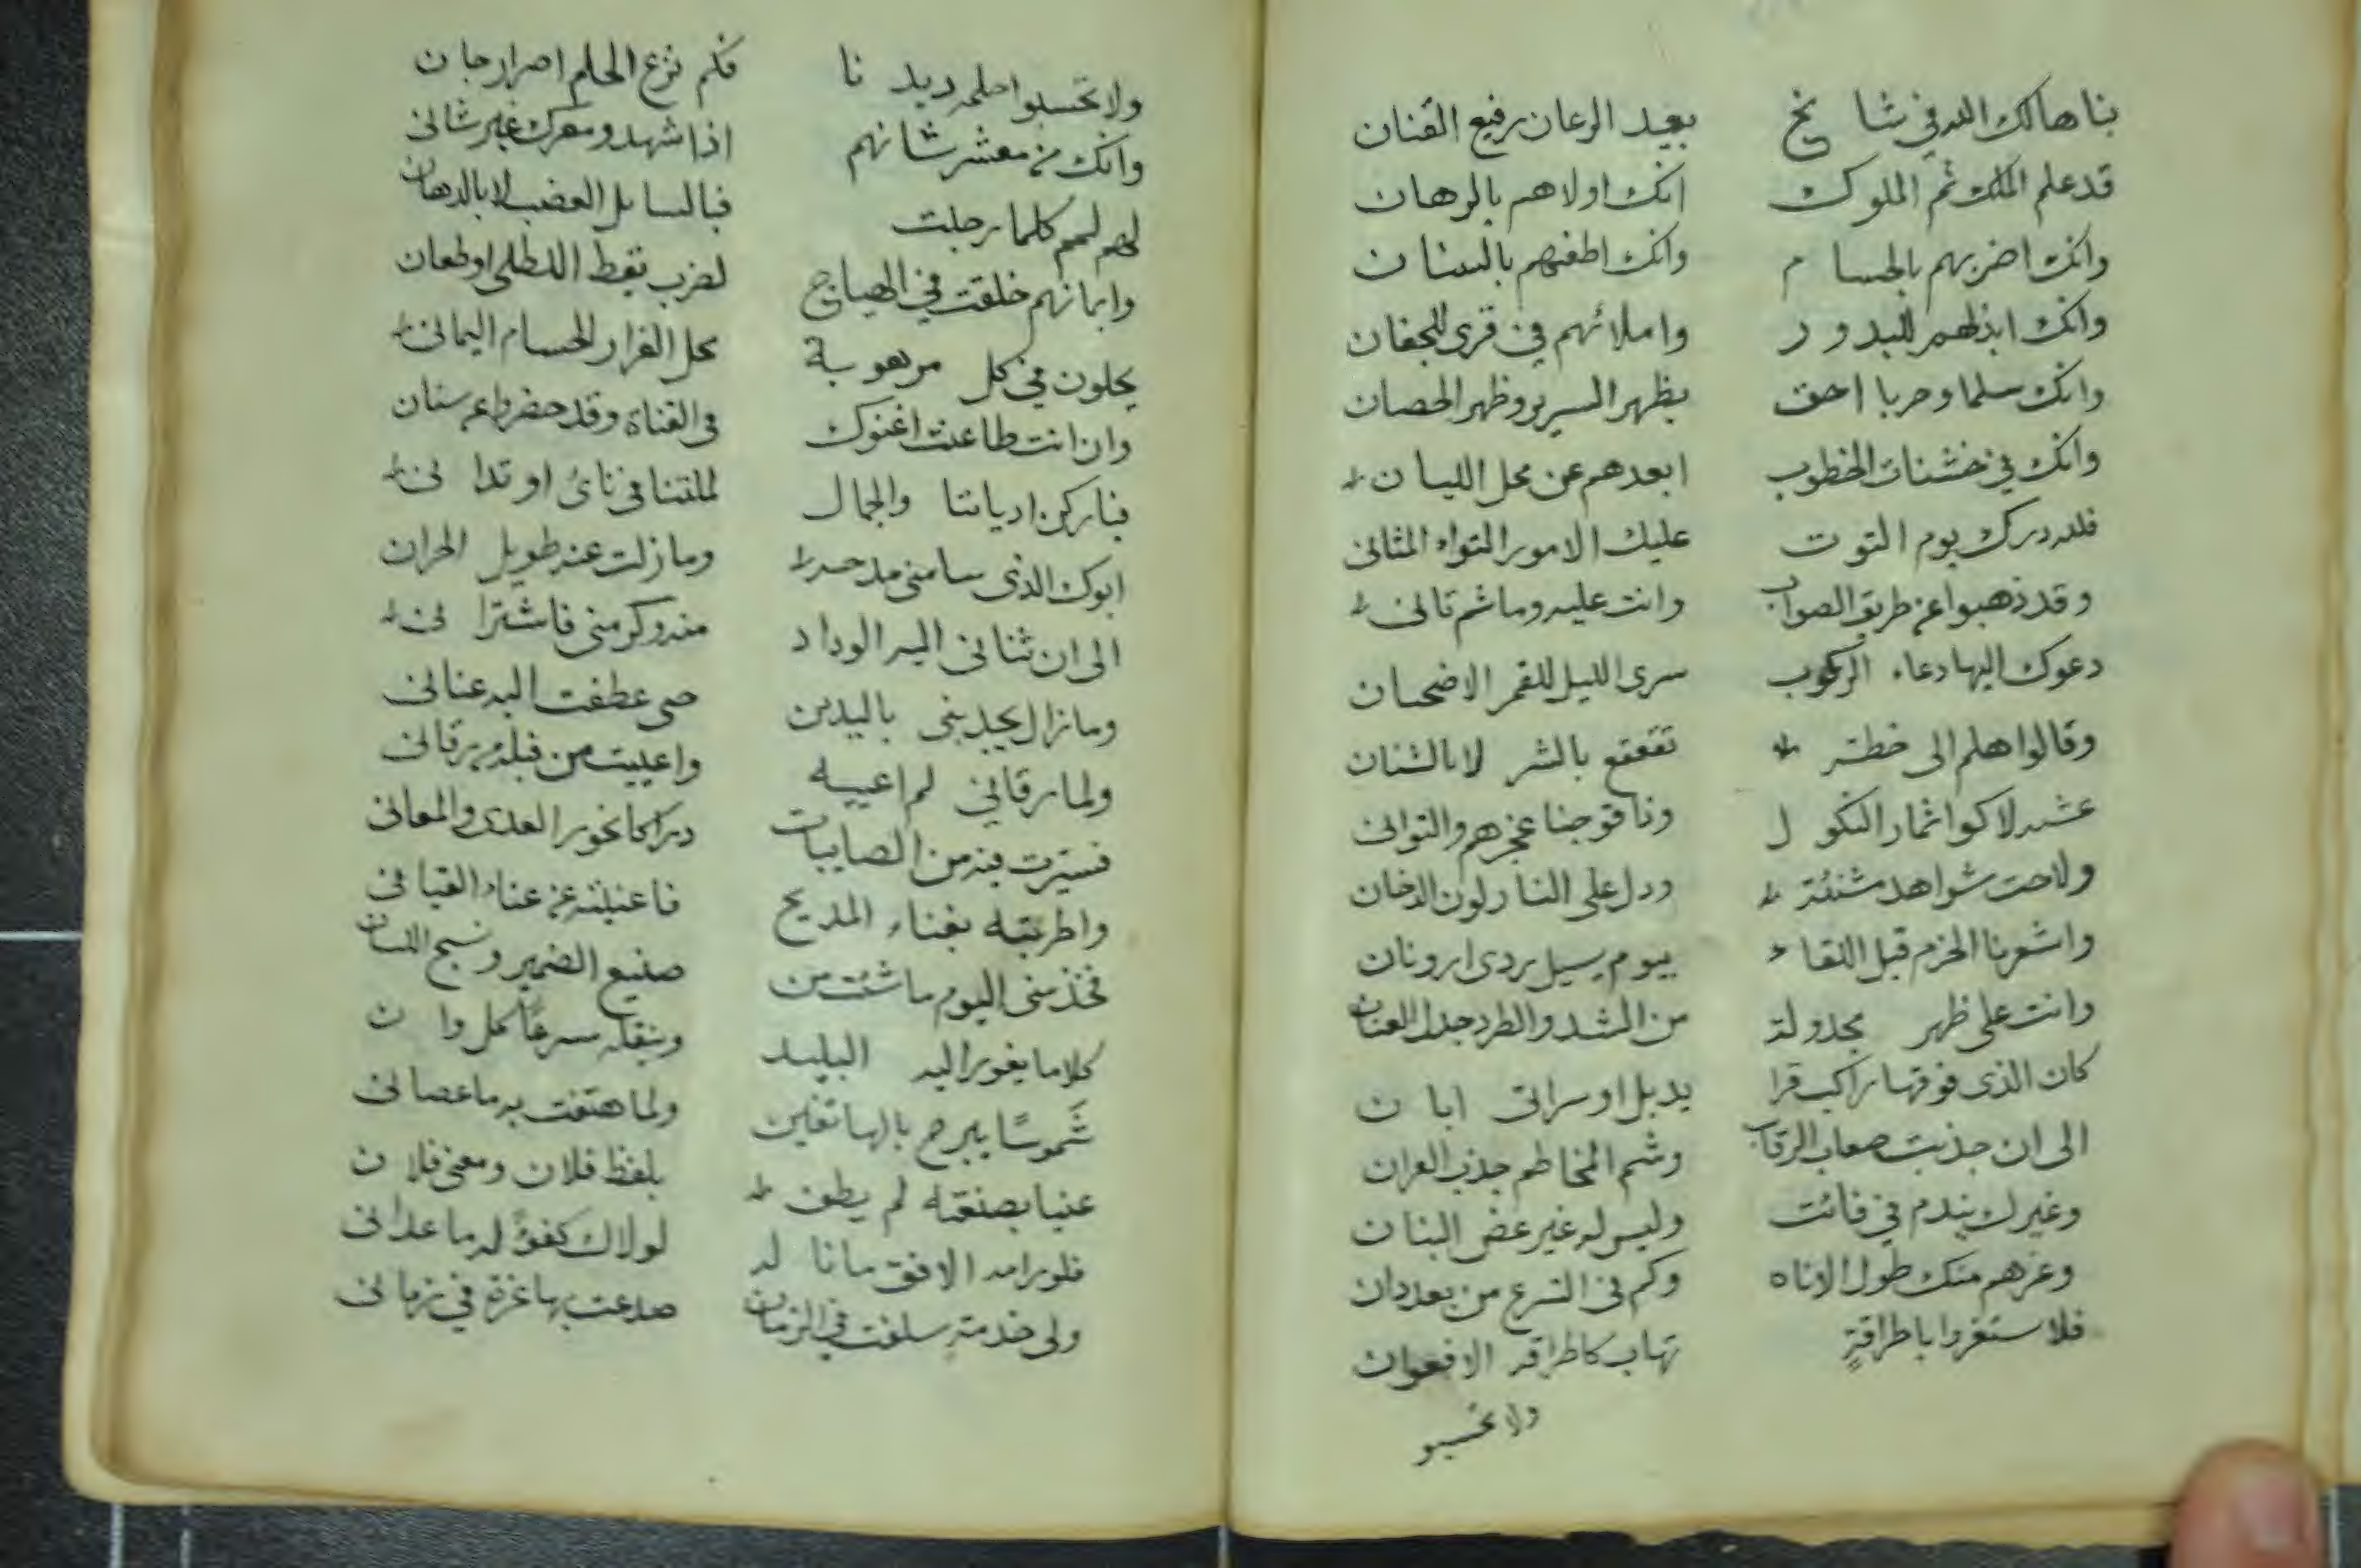 بناها لك الله في شا مخ بعيد الرعان رفيع القنان
قد علم الملك ثم الملوك انك اولاهم بالرهان
وانك اضربهم بالحسا م وانك اطعنهم بالسنا ن
وانك ابذلهم للبدو ر واملائهم في قرى للجفان
وانك سلما وحربا احق بظهر السرير وظهر الحصان
وانك في خشنات الخطوب ابعدهم عن محل الليا ن
فلله درك يوم التوت عليك الامور التواء المثانى
وقد ذهبوا عن طريق الصواب وانت عليه وما ثم ثانى
دعوك اليها دعاء الركوب سرى الليل للقمر الاضحيان
وقالوا هلم الى خطة تقعقع بالشر لا بالشنان
عشية لاكوا ثمار النكو ل وناقوجنا عجزهم والتوانى
ولاحت شواهد مشنئة ودل على النار لون الدخان
واشعرنا الحزم قبل اللقاء بيوم يسيل ردى ارونان
وانت على ظهر مجدولة من الشد والطرد جدل العنان
كان الذى فوقها راكب قرا يذبل او سراتى ابا ن
الى ان جذبت صعاب الرقاب وشم المخاطم جذب العران
وغيرك يندم في فائت وليس له غير عض البنان
وغرهم منك طول الاناه وكم فى الشرع من بعد دان
فلا ستغروا باطراقةٍ تهاب كاطراقه الافعوان
ولا تحسبو
ولا تحسبوا حلمه ديد نا فكم نزع الحلم اصرار جا ن
وانك من معشر شانهم اذا شهدو معرك غير شانى
لهم لمم كلما رجلت فبالسابل العضب لا بالدهان
وايمانهم خلقت في الهياج لضرب يقط الطلى او طعان
يحلون في كل مرهوبة محل الغرار الحسام اليمانى
وان انت طاعنت اغنوك فى القناة وقد حضروا عم سنان
فنار كن اديانتا والجمال لملقنا في نائ او تدا نى
ابوك الذى سامنى مدحه وما زلت عنه طويل الحران
الى ان ثنانى اليه الوداد منه وكرمنى فاشترا نى
وما زال يجذبنى باليدين حى عطفت اليه عنانى
ولما رقاني لم اعييه واعييت من قبله من رقانى
فسيرت فيه من الصايبات دراكا نحور العدى والمعانى
واطربته بغناء المديح فاعنيته عن عناء القيا نى
فخذ منى اليوم ما شئت من صنيع الضمير ونسج اللسان
كلاما يغور اليه البليد وينقله سرعًا كل وا ن
شَموسًا يبرح بالهاتفين ولما هتفت به ما عصا نى
عنيا بصنعته لم يطف بلفظ فلان ومعنى فلا ن
فلو رامه الافق ما نا له لولاك كفوٌ له ما عدانى
ولى خدمة سلفت في الزمان صدعت بها غرة في زمانى